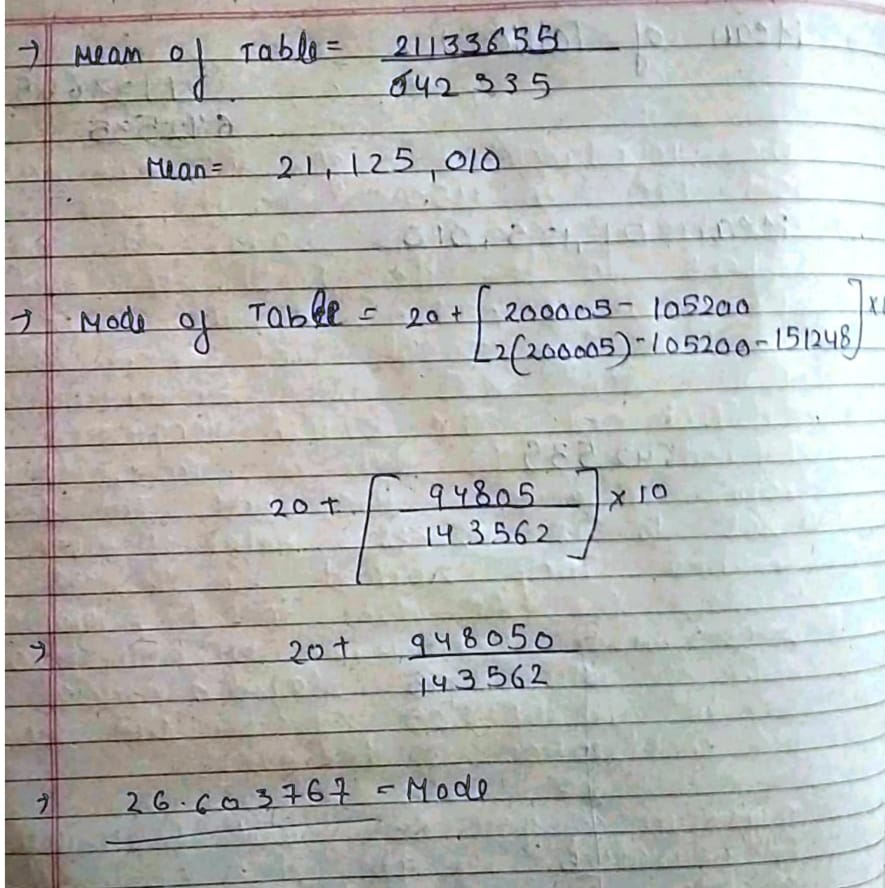 → Mean of Table = 21133655
642335
Mean = 21,125,010
→ Mode of Table = 20 + [ 200005 - 105200
2(200005) - 105200 - 151248 ] ×1
20 + [ 94805
143562 ] × 10
→ 20 + 948050
143562
→ 26.603767 = Mode